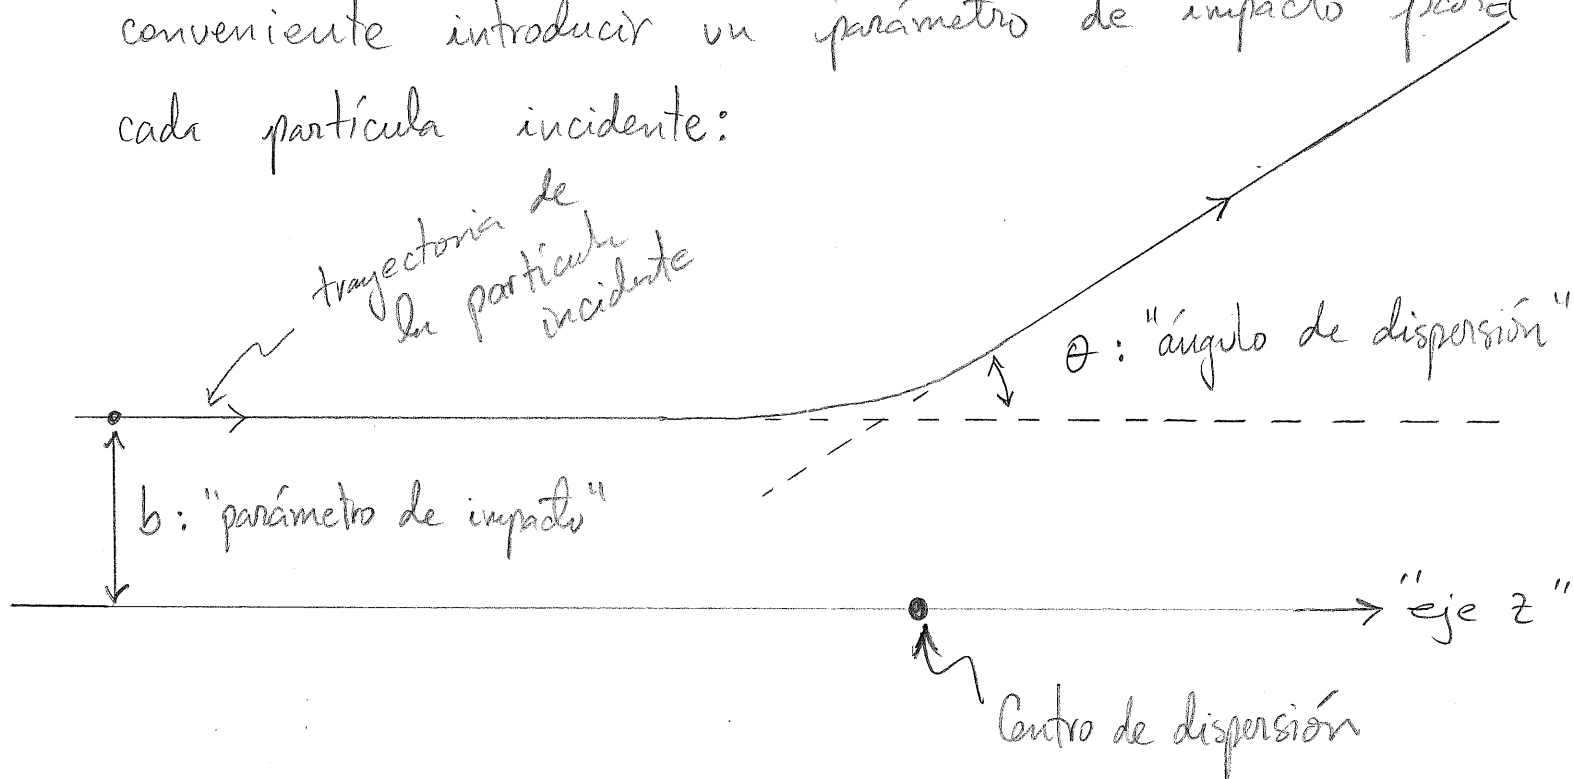 conveniente introducir un parámetro de impacto para
cada partícula incidente:
trayectoria de
la partícula
incidente
θ : "ángulo de dispersión"
b : "parámetro de impacto"
"eje z"
Centro de dispersión